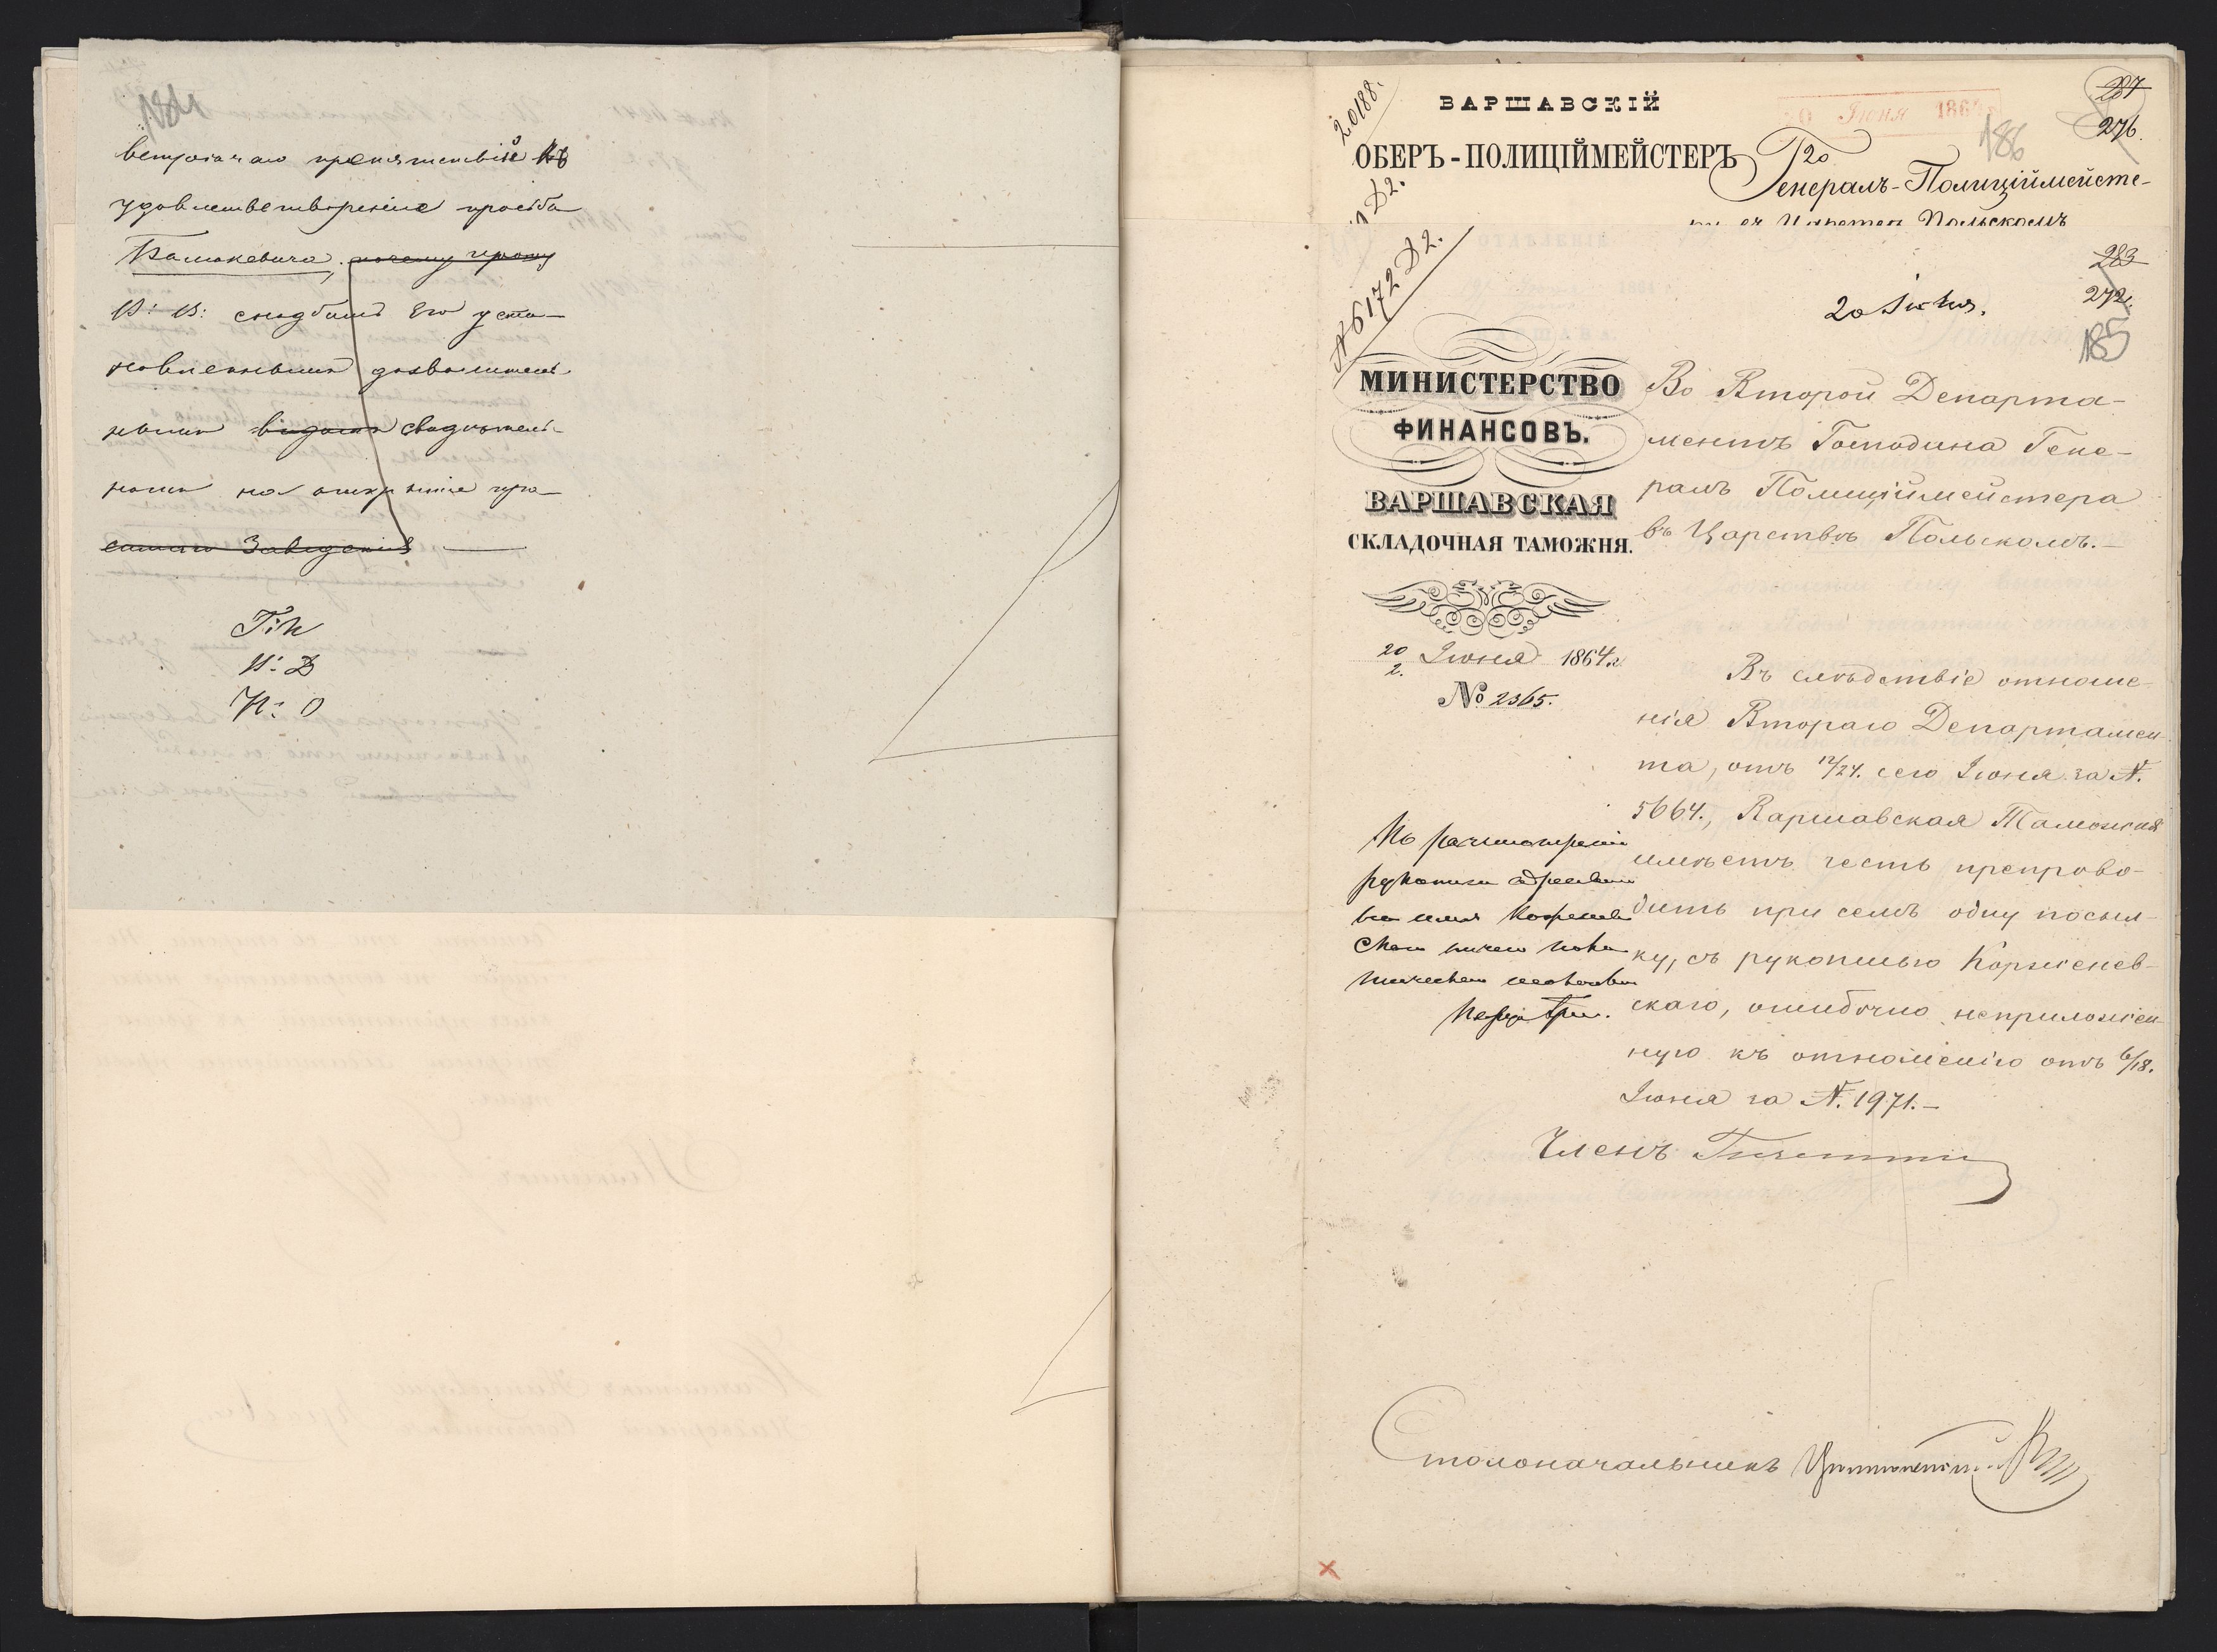 184
встрѣчаю препятствій къ
удовлетворенію просьбы
Балюкевича, почему прошу
В: В: снабдить Его уста-
новленнымъ дозволитель-
нымъ видомъ свидѣтель-
на открытіе
Заведенія
Г: П
Н: Д
Н: О
20188.
Д2.
ВАРШАВСКІЙ
ОБЕРЪ-ПОЛИЦІЙМЕЙСТЕРЪ
20 Іюня 1864 г
287
276.
186
Генералъ-Полиціймейсте-
ру въ Царствѣ Польскомъ
№ 6172 Д2.
283
272
185
20 Іюня.
МИНИСТЕРСТВО
ФИНАНСОВЪ.
ВАРШАВСКАЯ
СКЛАДОЧНАЯ ТАМОЖНЯ.
20
2. Іюня 1864 г.
№ 2365.
Во Второй Департа-
ментъ Господина Гене-
ралъ Полиціймейстера
въ Царствѣ Польскомъ.—
Въ слѣдствіе отноше-
нія Втораго Департамен-
та, отъ 12/24. сего Іюня за №.
5664., Варшавская Таможня
имѣетъ честь препрово-
дить при семъ одну посыл-
ку, съ рукописью Корженев-
скаго, ошибочно неприложен-
ную къ отношенію отъ 6/18.
Іюня за №. 1971.—
По разсмотреніи
рукописи
на имя
Членъ
Столоначальникъ